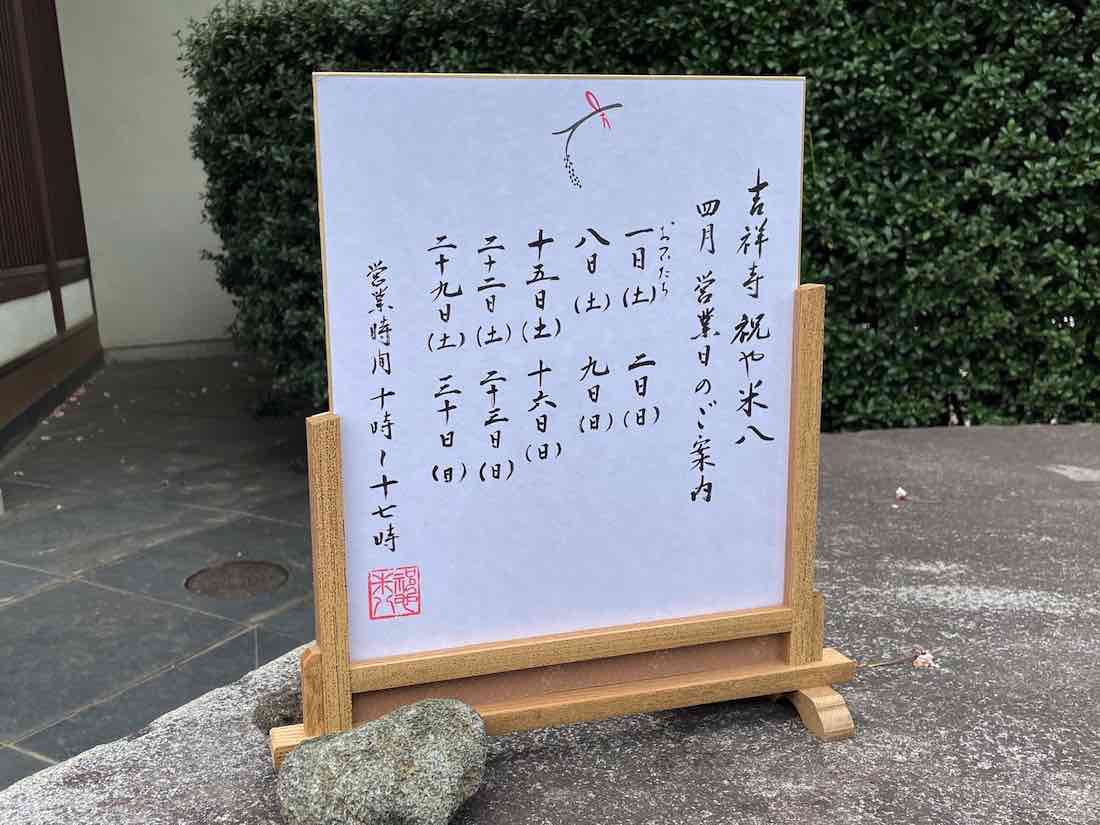 吉祥寺 祝や米八
四月 営業日のご案内
おついたち
一日(土) 二日(日)
八日(土) 九日(日)
十五日(土) 十六日(日)
二十二日(土) 二十三日(日)
二十九日(土) 三十日(日)
営業時間 十時ー十七時